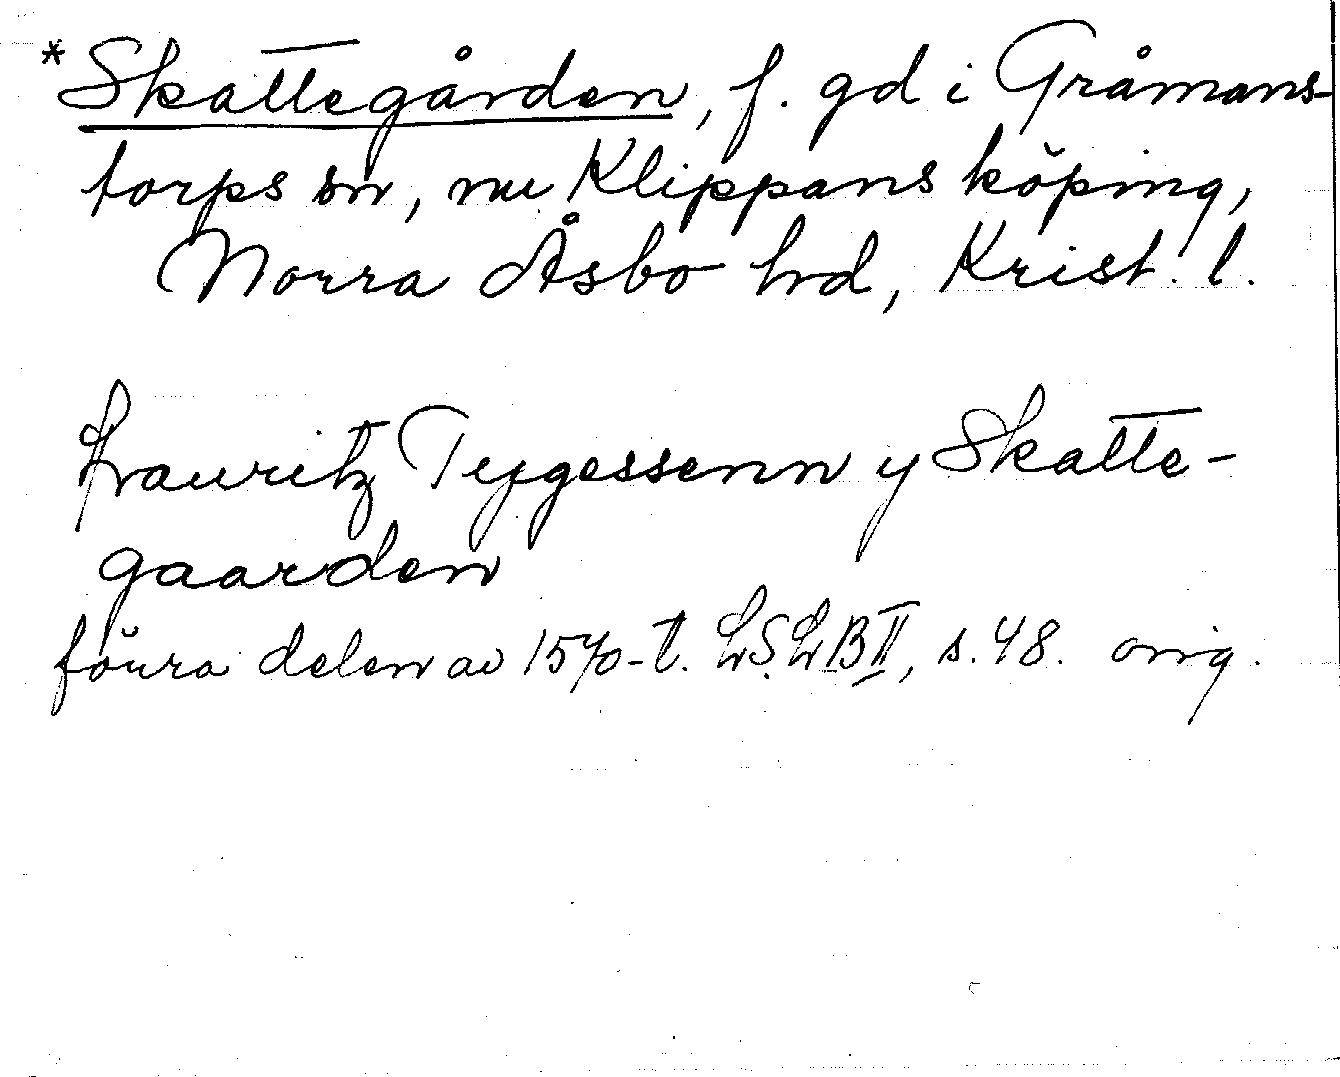 *Skattegården, f. gd i Gråmans-
torps sn, nu Klippans köping,
Norra Åsbo hd, Krist. l.
Lauritz Tygessenn y Skatte-
gaarden
förra delen av 1570-t. LSLB II, s. 48. orig.